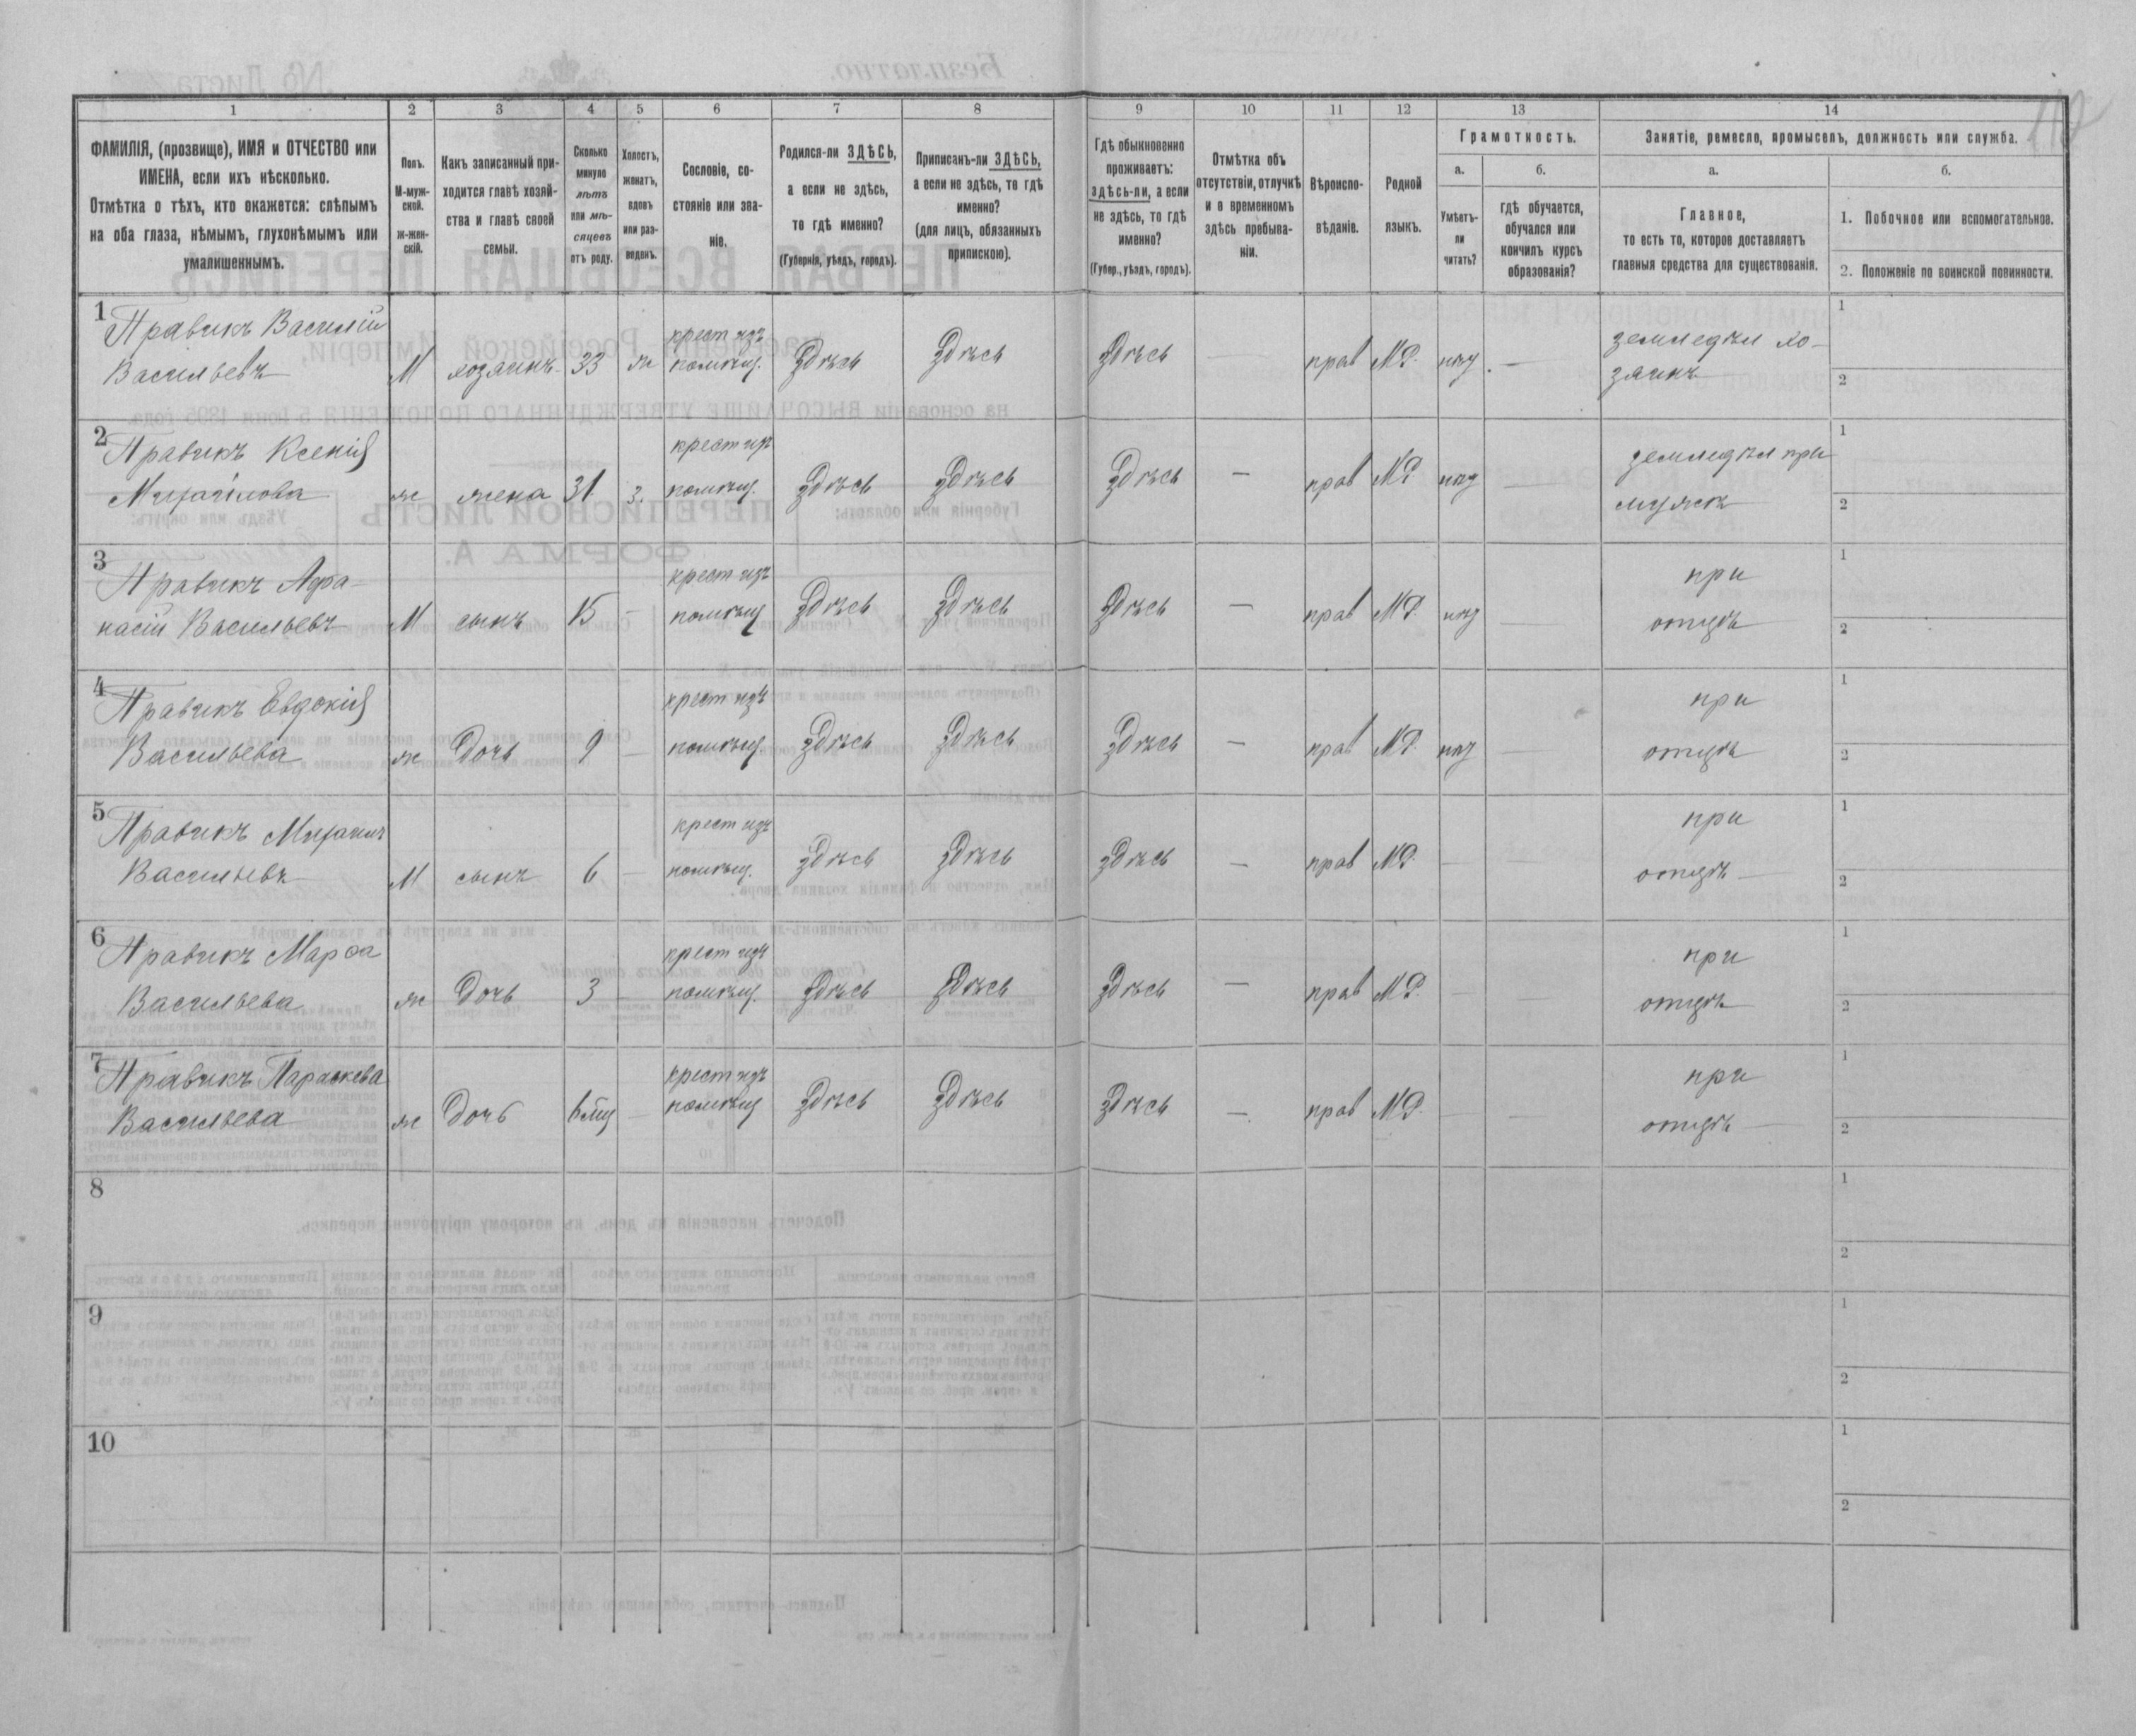 1 2 3 4 5 6 7 8 9 10 11 12 13 14
ФАМИЛІЯ, (прозвище), ИМЯ и ОТЧЕСТВО или
ИМЕНА, если ихъ нѣсколько.
Отмѣтка о тѣхъ, кто окажется: слѣпымъ
на оба глаза, нѣмымъ, глухонѣмымъ или
умалишеннымъ.
Полъ.
М-муж-
ской.
ж-жен-
скій.
Какъ записанный при-
ходится главѣ хозяй-
ства и главѣ своей
семьи.
Сколько
минуло
лѣтъ
или мѣ-
сяцевъ
отъ роду.
Холостъ,
женатъ,
вдовъ
или раз-
веденъ.
Сословіе, со-
стояніе или зва-
ніе.
Родился-ли ЗДѢСЬ,
а если не здѣсь,
то гдѣ именно?
(Губернія, уѣздъ, городъ).
Приписанъ-ли ЗДѢСЬ,
а если не здѣсь, то гдѣ
именно?
(для лицъ, обязанныхъ
припискою).
Гдѣ обыкновенно
проживаетъ:
здѣсь-ли, а если
не здѣсь, то гдѣ
именно?
(Губер., уѣздъ, городъ).
Отмѣтка объ
отсутствіи, отлучкѣ
и о временномъ
здѣсь пребыва-
ніи.
Вѣроиспо-
вѣданіе.
Родной
языкъ.
Грамотность.
а.
Умѣетъ-
ли
читать?
б.
гдѣ обучается,
обучался или
кончилъ курсъ
образованія?
Занятіе, ремесло, промыселъ, должность или служба.
а.
Главное,
то есть то, которое доставляетъ
главныя средства для существованія.
б.
1. Побочное или вспомогательное.
2. Положеніе по воинской повинности.
1 Правикъ Василій крест изъ земледѣл хо- 1
Васильевъ М хозяинъ 33 ж помѣщ. Здѣсь Здѣсь Здѣсь — прав М.Р. нѣт — зяинъ 2
2 Правикъ Ксенія крест изъ земледѣл при 1
Михайлова ж жена 31 з. помѣщ. Здѣсь Здѣсь Здѣсь — прав М.Р. нѣт — мужѣ 2
3 Правикъ Афа- крест изъ при 1
насій Васильевъ М сынъ 15 — помѣщ Здѣсь Здѣсь Здѣсь — прав М.Р. нѣт — отцѣ 2
4 Правикъ Евдокія крест изъ при 1
Васильева ж Дочь 9 — помѣщ. Здѣсь Здѣсь Здѣсь — прав М.Р. нѣт — отцѣ 2
5 Правикъ Михаилъ крест изъ при 1
Васильевъ М сынъ 6 — помѣщ. Здѣсь Здѣсь Здѣсь — прав М.Р. — — отцѣ 2
6 Правикъ Марфа крест изъ при 1
Васильева ж Дочь 3 — помѣщ. Здѣсь Здѣсь Здѣсь — прав М.Р. — — отцѣ 2
7 Правикъ Параскева крест изъ при 1
Васильева ж Дочь помѣщ Здѣсь Здѣсь Здѣсь — прав М.Р. — — отцѣ 2
8 1
2
9 1
2
10 1
2